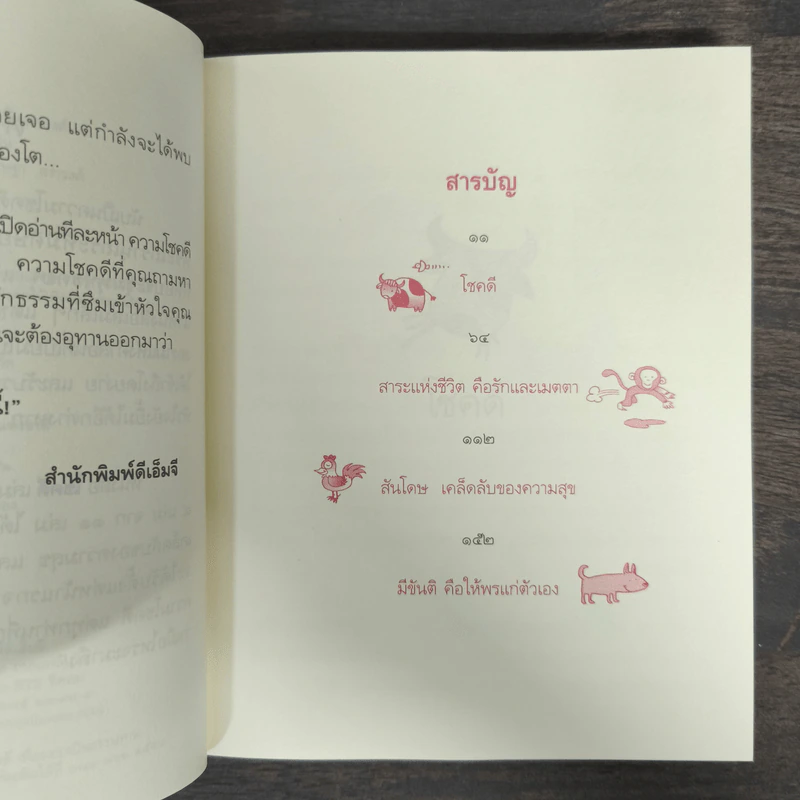 ยเจอ แต่กำลังจะได้พบ
องโต...
เปิดอ่านทีละหน้า ความโชคดี
ความโชคดีที่คุณถามหา
กธรรมที่ซึมเข้าหัวใจคุณ
จะต้องอุทานออกมาว่า
!”
สำนักพิมพ์ดีเอ็มจี
สารบัญ
๑๑
โชคดี
๖๔
สาระแห่งชีวิต คือรักและเมตตา
๑๑๒
สันโดษ เคล็ดลับของความสุข
๑๕๒
มีขันติ คือให้พรแก่ตัวเอง